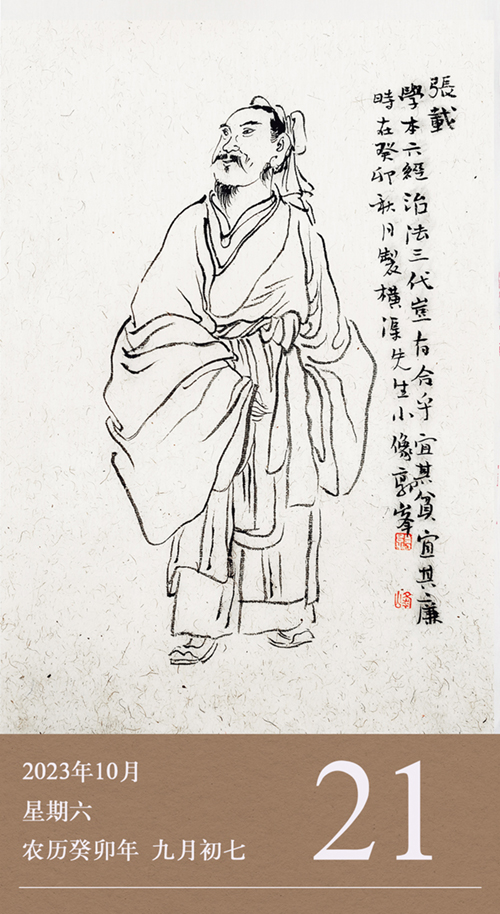 張載
學本六經治法三代豈有合乎宜其貧宜其廉
時在癸卯秋月製橫渠先生小像郭峯
2023年10月
星期六
农历癸卯年 九月初七
21